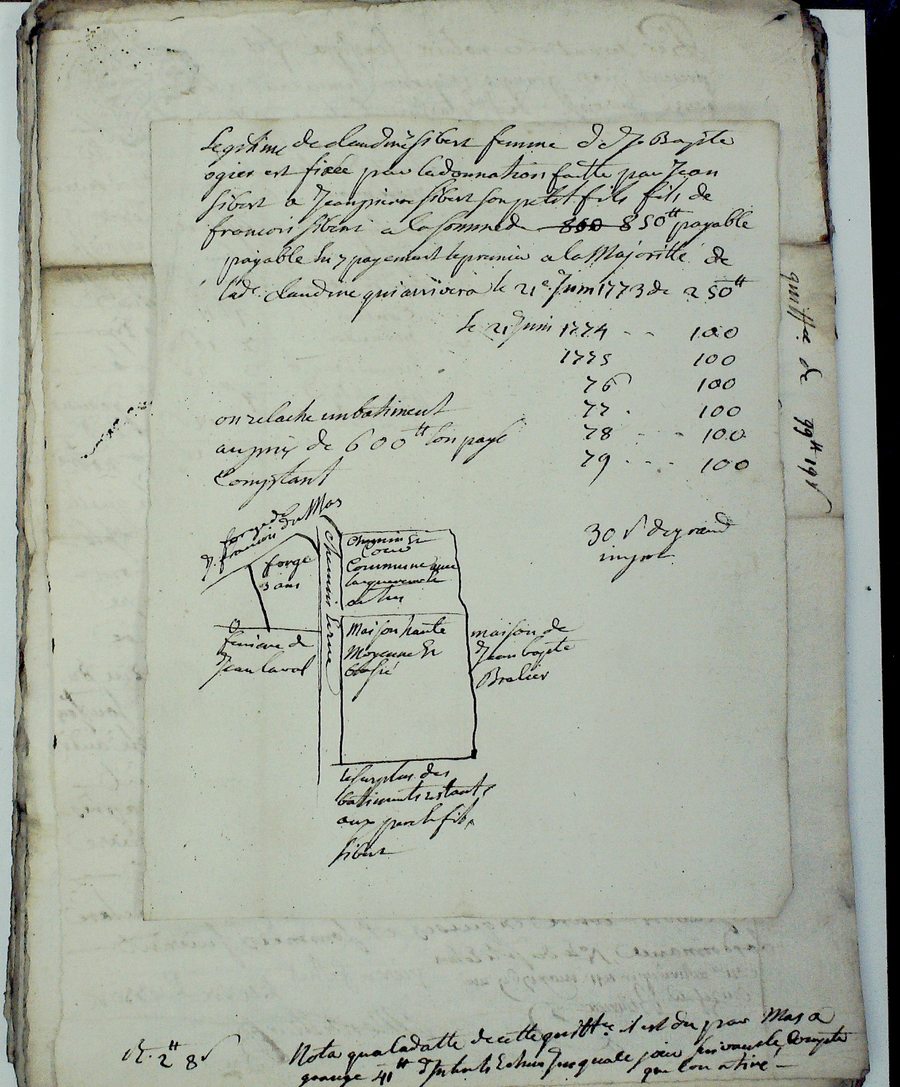 Legitime de claudine Sibert femme de Jn Bapte
ogier est fixée par la donnation faitte par Jean
Sibert a Jean pierre Sibert son petit fils fils de
francois Sibert a la somme de 800 850tt payable
payable en 7 payement le premier a la Majoritté de
lade. claudine qui arrivera le 21e Juin 1773 de 250tt
le 21 Juin 1774 - - 100
1775 100
76 100
77 . 100
78 - - - 100
79 - - - 100
on relache un batiment
au prix de 600tt lon paye
Comptant
30 s de grand
forge de
francois du Mas
forge
3 ans
chemin
chemin et
Cour
Commune
Maison haute
Moyenne et
basse
maison de
Jean bapte
Jean Laval
le surplus des
batiments restants
aux pere et fils
Sibert
quitta. de
2tt 8s
Nota qua la datte de cette quittce il est du par Mas a
grange 41tt jusquale jour suivant le Compte
que lon a tiré